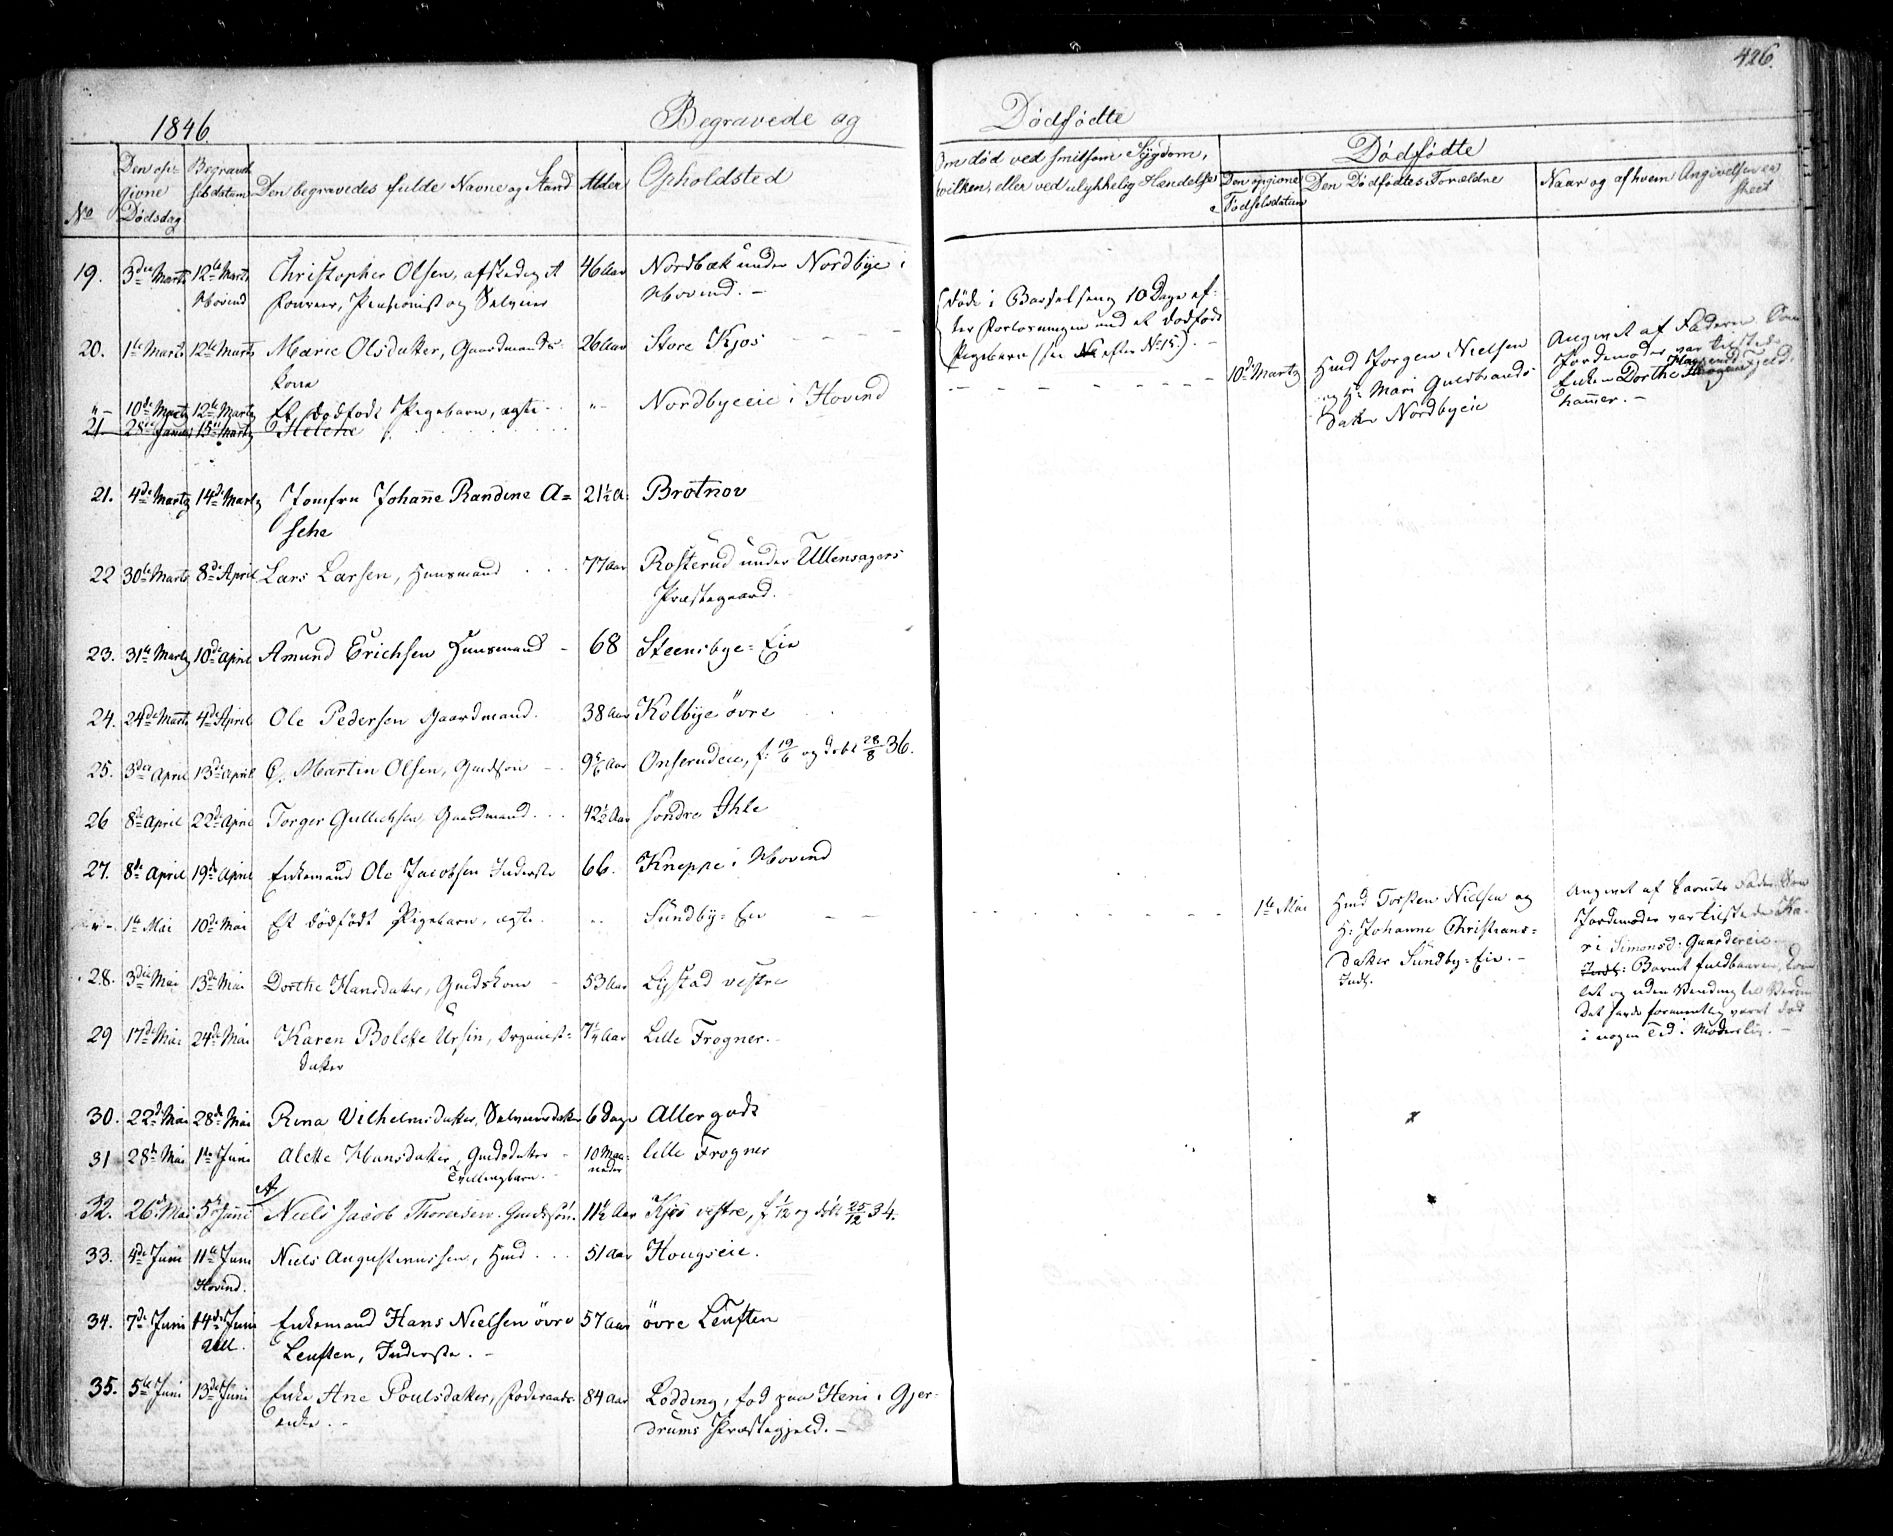 426.
1846.
Begravede og
Dødfødte
No
Den opgivne Dødsdag
Begravelsesdatum
Den begravedes fulde Navne og Stand
Alder
Opholdsted
Om død ved smitsom Sygdom,
hvilken, eller ved ulykkelig Hændelse
Dødfødte
Den opgivne Fødselsdatum
Den Dødfødtes Forældre
Naar og af hvem Angivelsen er skeet
19. 3die Marts 12te Marts Christopher Olsen, afskediget 46 Aar Nordbæk under Nordbye i
Hovind Foureer, Pensionist og Selveier Hovind. -
20. 1te Marts 12te Marts Marie Olsdatter, Gaardmands- 26 Aar Store Kjos
kone
Døde i Barselseng 10 Dage ef-
ter Forløsningen med et dødfødt
Pigebarn (see No efter No 15). -
" - 10de Martz 12te Martz Et dødfødt Pigebarn, ægte - " - Nordbyeeie i Hovind
10de Martz
Hmd Jørgen Nielsen
og H: Mari Guldbrands-
datter Nordbyeie
Angivet af Faderen Som
Jordemoder var tilstede
Enken Dorthe Fjeld-
hammer. -
21. 28de Januar 15de Martz Helene
21. 4de Martz 14de Martz Jomfru Johanne Randine A= 21½ A. Brotnov
sche
22 30te Marts 8de April Lars Larsen, Huusmand 77 Aar Rosterud under Ullensagers
Præstegaard.
23. 31te Martz 10de April Amund Erichsen Huusmand - 68 Steensbye=Eie
24. 24de Marts 4de April Ole Pedersen Gaardmand. 38 Aar Kolbye övre
25. 3die April 13de April Martin Olsen, Gmdsøn - 9 5/6 Aar Onsrudeie, f: 19/6 og døbt 28/8 36.
26 8de April 22de April Torger Gullichsen, Gaardmand... 42½ Aar søndre Ihle
27. 8de April 19de April Enkemand Ole Jacobsen Inderste 66. Kneppe i Hovind
" - 1te Mai 10de Mai Et dødfødt Pigebarn, ægte. Sundby=Eie
1te Mai
Hmd Torsten Nielsen og
H: Johanne Christians=
datter Sundby=Eie. -
Inds.
Angivet af Barnets Fader Som
Jordemoder var tilstede Ka-
ri Simonsd. Gaardereie
Barnet fuldbaaren,
let og uden Vending til Verden
Det havde formentlig været død
i nogen Tid i Moderliv. -
28. 3die Mai 13de Mai Dorthe Hansdatter, Gmdskone - 53 Aar Lystad vestre
29 17de Mai 24de Mai Karen Bolette Ursin, Organist- 7¼ Aar Lille Frogner.
datter
30. 22de Mai 28de Mai Rina Vilhelmsdatter, Selveierdatter 6 Dage Allergodt
31 28de Mai 1te Juni Alette Hansdatter, Gmdsdatter - 10 Maa- lille Frogner
Tvillingbarn. neder
32. 26de Mai 5te Juni Niels Jacob Thoresen. Gmdssøn. 11½ Aar Kjos vestre, f 1/12 og døbt 25/12 34.
33. 4de Juni 11te Juni Niels Augustinussen, Hmd... 51 Aar Hougseie.
Hovind.
34. 7de Juni 14de Juni Enkemand Hans Nielsen övre 57 Aar övre Leufsten
Ull. Leufsten, Inderste. -
35. 5te Juni 13de Juni Enke Ane Poulsdatter, Føderaads- 84 Aar Lodding, fød paa Heni i Gjer-
enke. - drums Præstegjeld. -